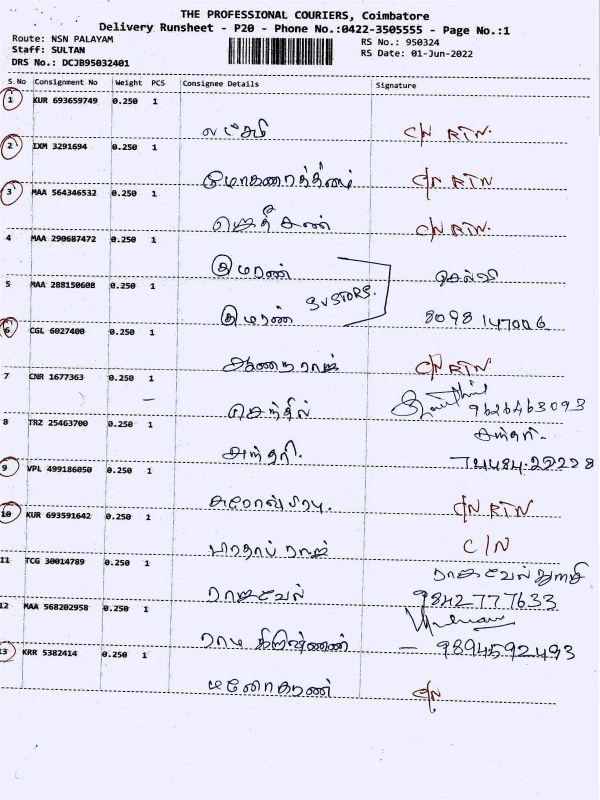 THE PROFESSIONAL COURIERS, Coimbatore
Delivery Runsheet - P20 - Phone No.:0422-3505555 - Page No.:1
Route: NSN PALAYAM
RS No.: 950324
Staff: SULTAN
RS Date: 01-Jun-2022
DRS No.: DCJB95032401
S.No Consignment No Weight PCS Consignee Details Signature
1 KUR 693659749 0.250 1
லட்சுமி C/N RTN.
2 IXM 3291694 0.250 1
மோகணரத்தினம் C/N RTN
3 MAA 564346532 0.250 1
C/N RTN.
4 MAA 290687472 0.250 1
குமரண் செல்வி
5 MAA 288150608 0.250 1
SVSTORS.
குமரண் 8098147006
6 CGL 6027400 0.250 1
ஆணநராஜ் C/N RTN
7 CNR 1677363 0.250 1
செந்தில் 9626463093
8 TRZ 25463700 0.250 1
சுந்தரி.
சுந்தரி. 74484.22228
9 VPL 499186050 0.250 1
C/N RTN
10 KUR 693591642 0.250 1
பாதாப் ராஜ் C/N
11 TCG 30014789 0.250 1
ராஜவேல் 9842777633
12 MAA 568202958 0.250 1
ராம கிருஷ்ணண் - 9894592493
13 KRR 5382414 0.250 1
மனோகரண் C/N